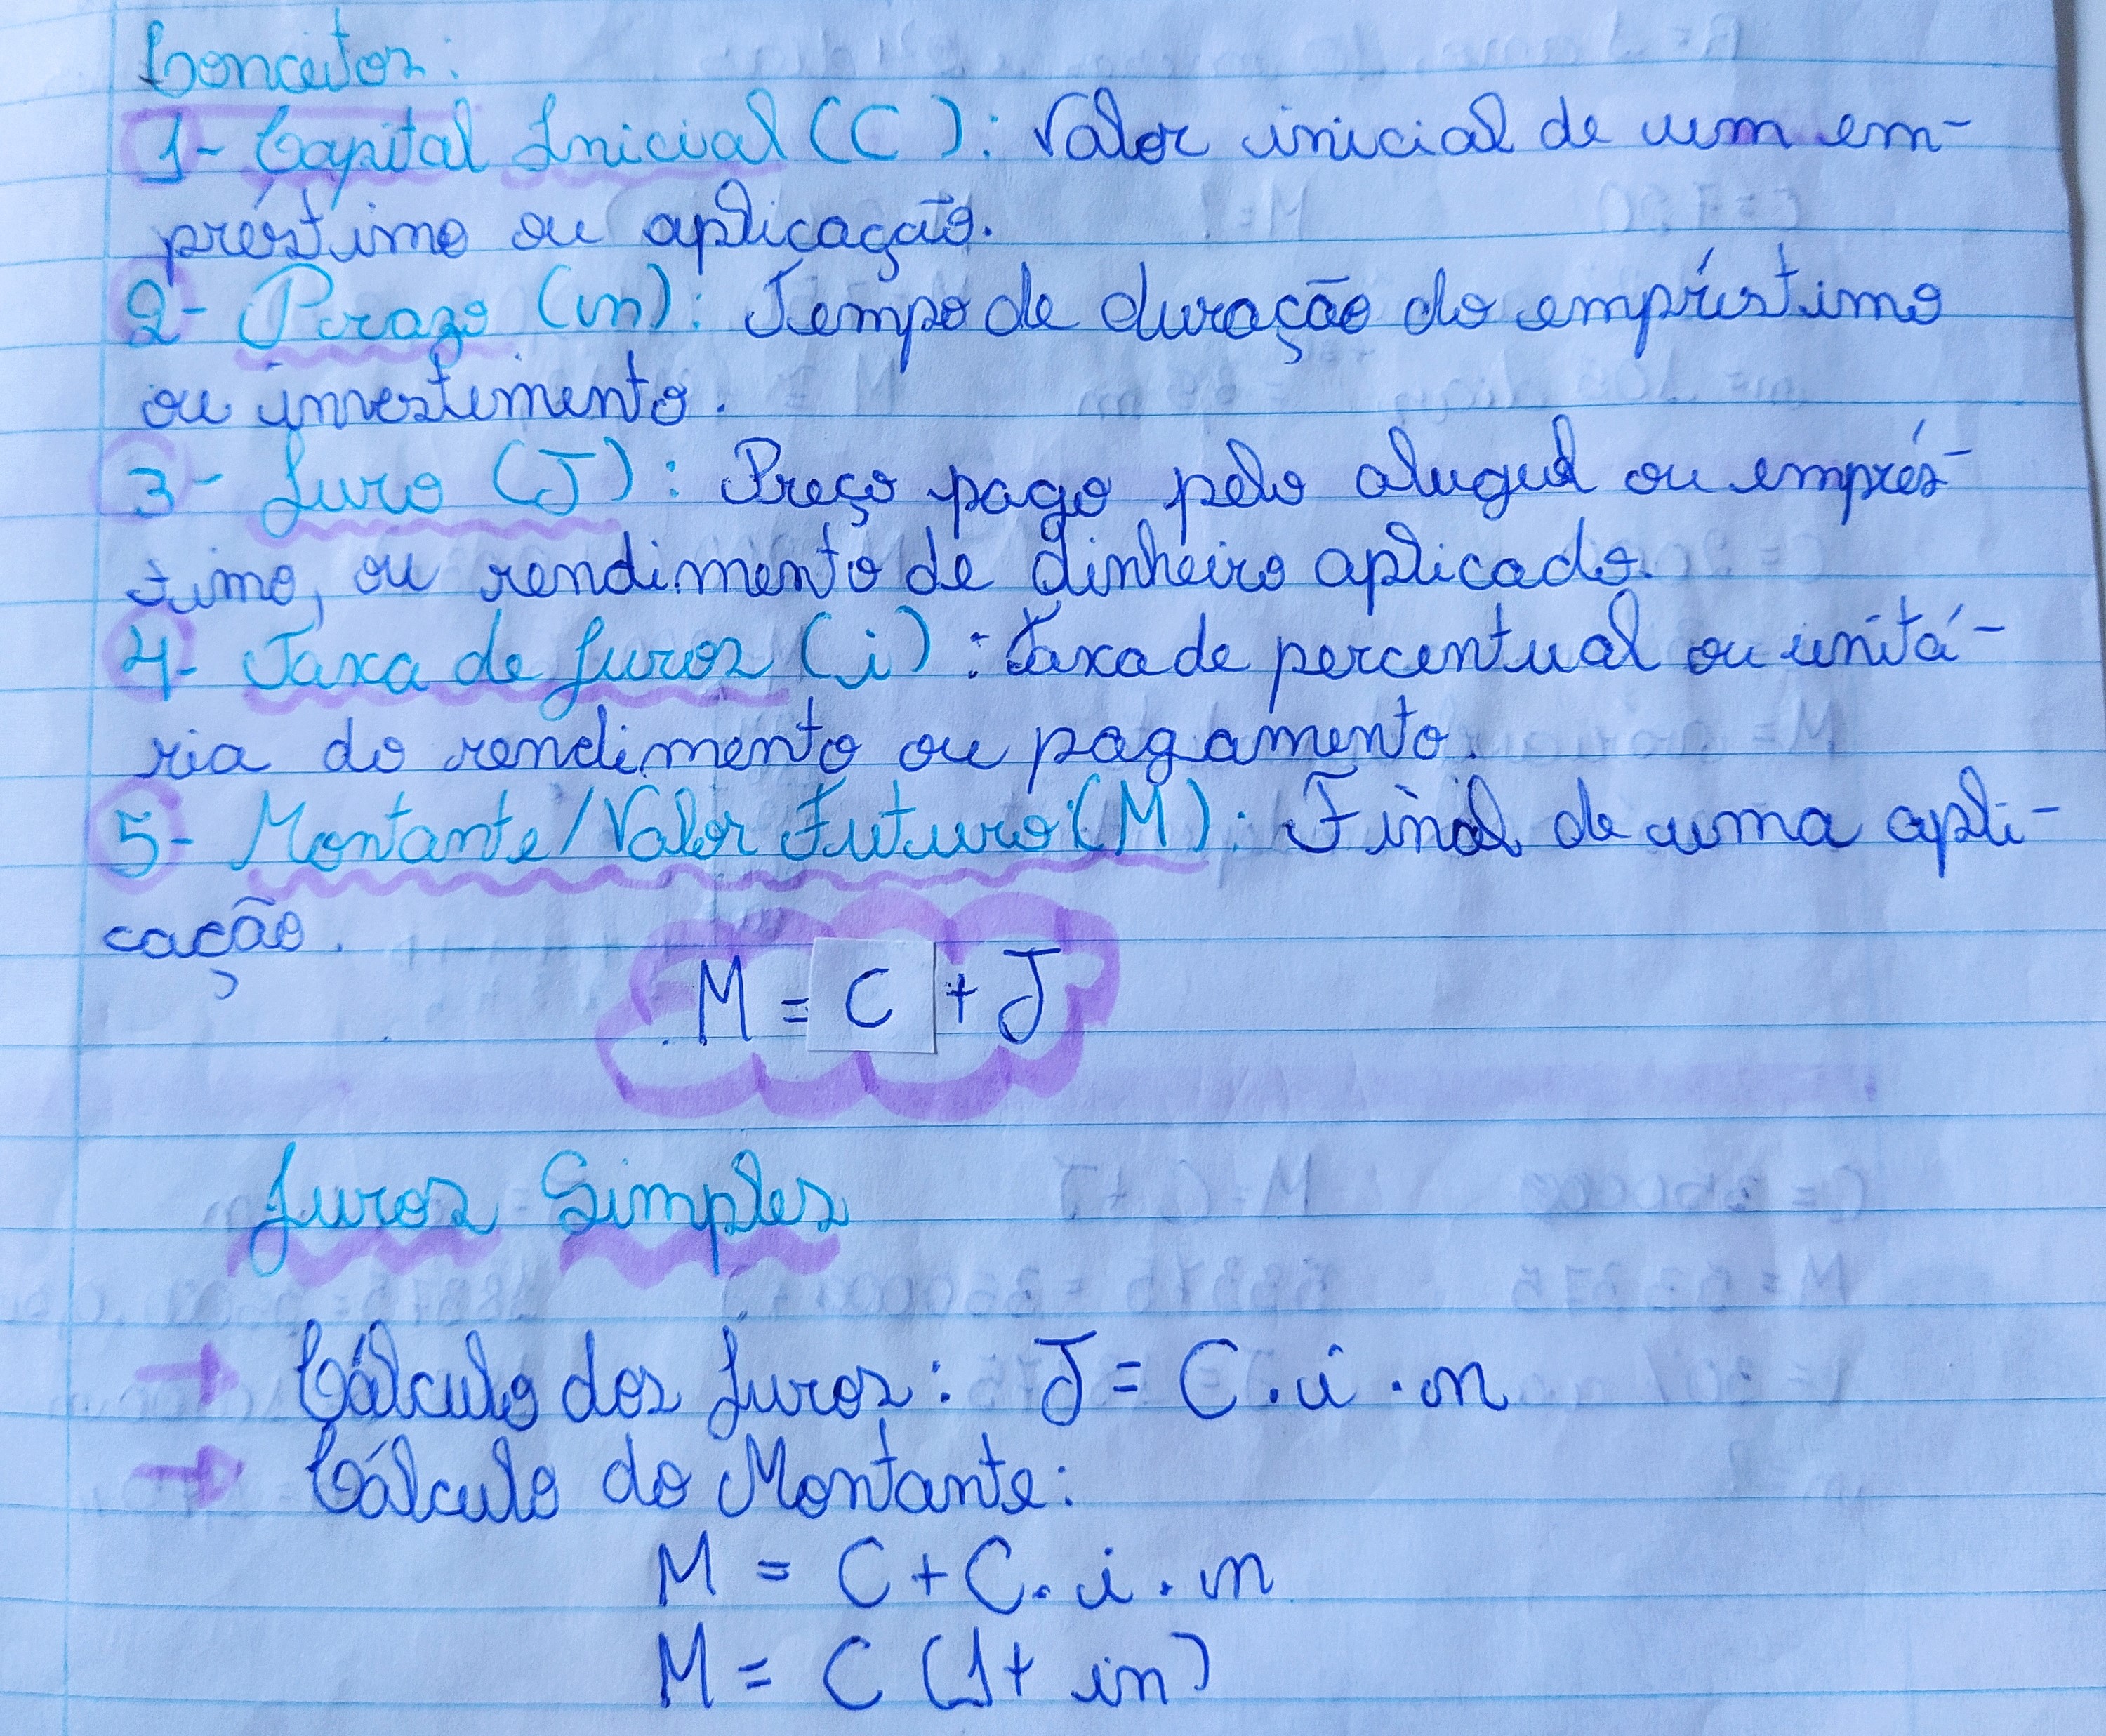 Conceitos:
1- Capital Inicial (C): Valor inicial de um em-
préstimo ou aplicação.
2- Prazo (n): Tempo de duração do empréstimo
ou investimento.
3- Juro (J): Preço pago pelo aluguel ou emprés-
timo, ou rendimento de dinheiro aplicado.
4- Taxa de Juros (i): Taxa de percentual ou unitá-
ria do rendimento ou pagamento.
5- Montante/Valor Futuro (M): Final de uma apli-
cação.
M = C + J
Juros Simples
→ Cálculo dos Juros: J = C . i . n
→ Cálculo do Montante:
M = C + C . i . n
M = C (1 + in)